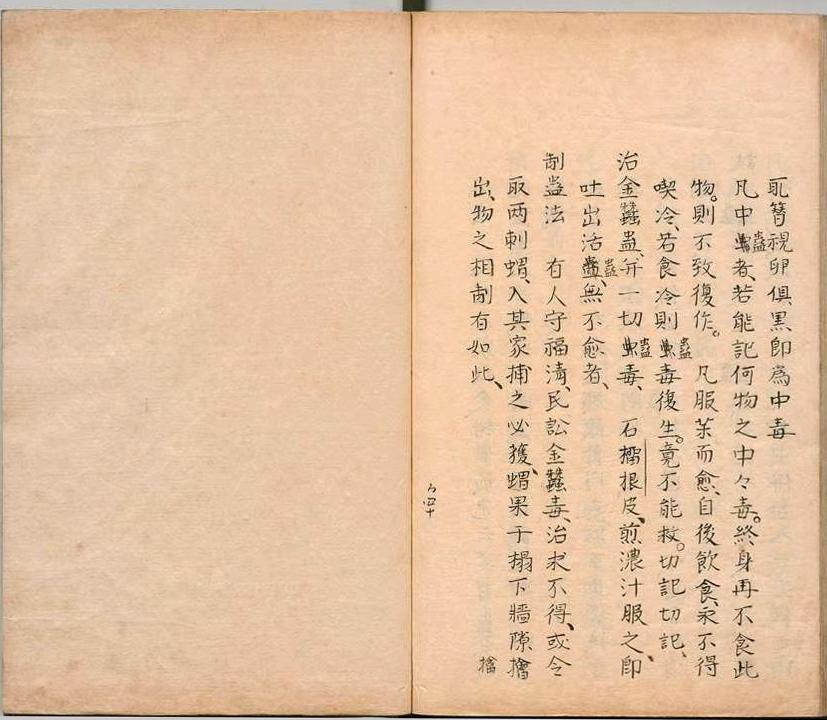 取簪視卵俱黑即為中毒
凡中蠱者、若能記何物之中々毒。終身再不食此
物。則不致復作。凡服茶而愈、自後飲食、永不得
喫冷、若食冷則蠱毒復生。竟不能救。切記切記、
治金蠶蠱、并一切蠱毒、石榴根皮、煎濃汁服之即
吐出活蠱、無不愈者、
制蠱法 有人守福清、民訟金蠶毒、治求不得、或令
取两刺蝟、入其家捕之必獲、蝟果于榻下牆隙擒
出、物之相制有如此、 擒
四十